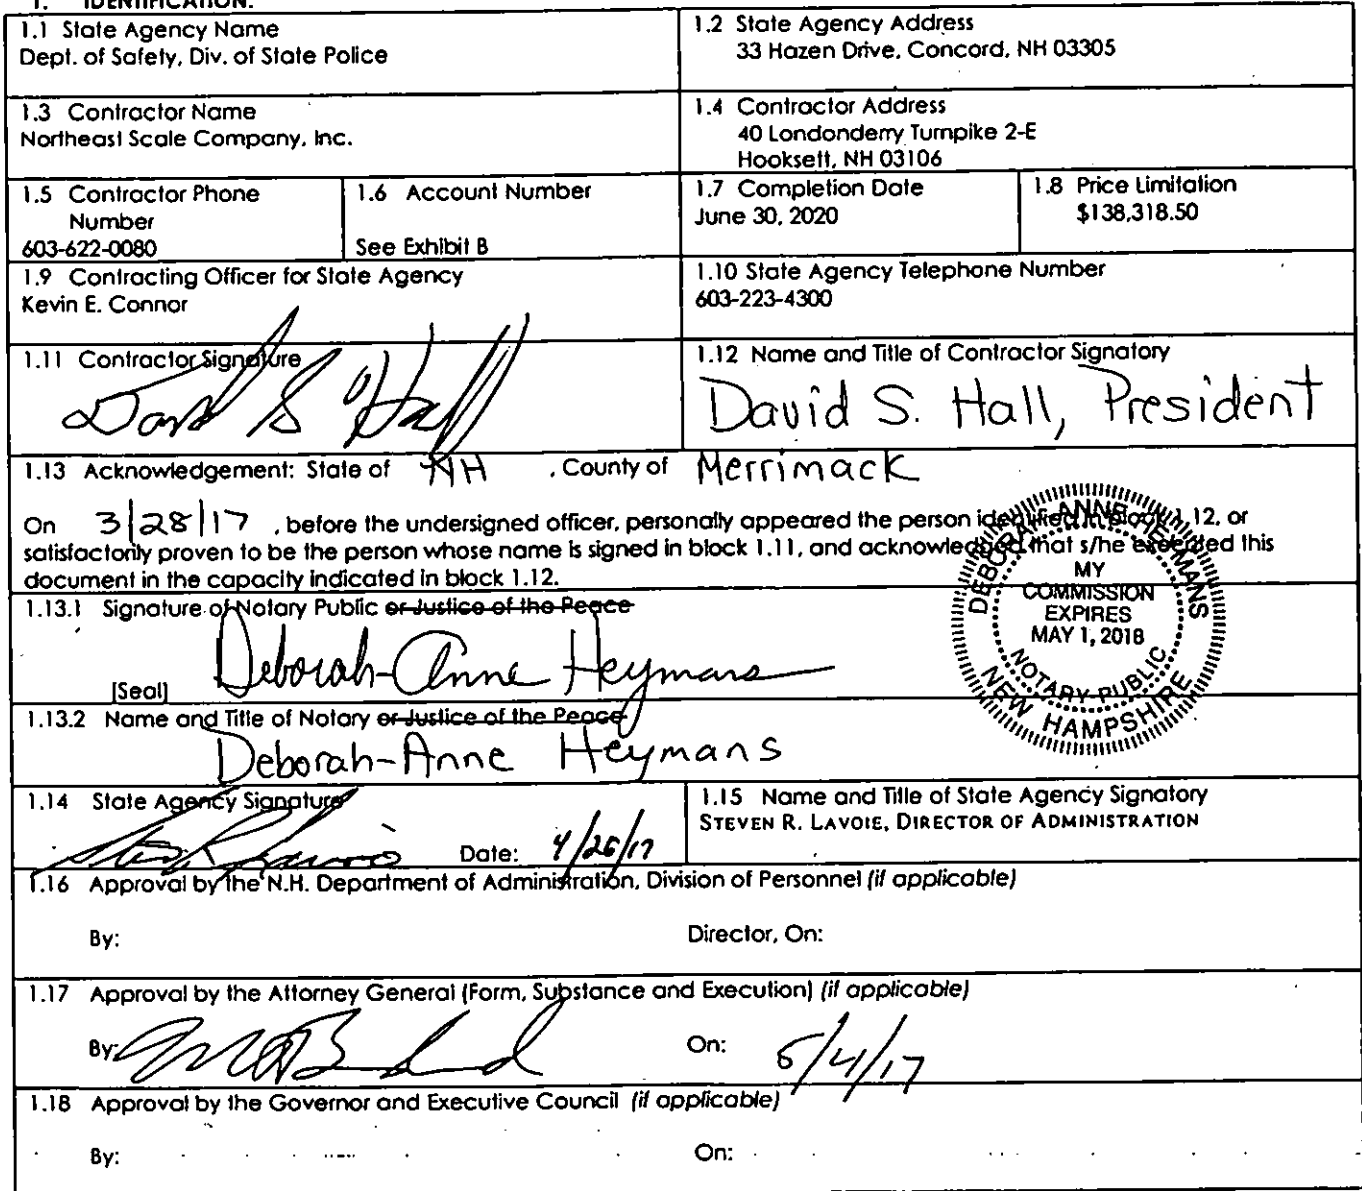 1. IDENTIFICATION.
1.1 State Agency Name
Dept. of Safety, Div. of State Police
1.2 State Agency Address
33 Hazen Drive, Concord, NH 03305
1.3 Contractor Name
Northeast Scale Company, Inc.
1.4 Contractor Address
40 Londonderry Turnpike 2-E
Hooksett, NH 03106
1.5 Contractor Phone
Number
603-622-0080
1.6 Account Number
See Exhibit B
1.7 Completion Date
June 30, 2020
1.8 Price Limitation
$138,318.50
1.9 Contracting Officer for State Agency
Kevin E. Connor
1.10 State Agency Telephone Number
603-223-4300
1.11 Contractor Signature
David S Hall
1.12 Name and Title of Contractor Signatory
David S. Hall, President
1.13 Acknowledgement: State of NH , County of Merrimack
On 3/28/17 , before the undersigned officer, personally appeared the person identified in block 1.12, or
satisfactorily proven to be the person whose name is signed in block 1.11, and acknowledged that s/he executed this
document in the capacity indicated in block 1.12.
DEBORAH ANNE HEYMANS
MY
COMMISSION
EXPIRES
MAY 1, 2018
NOTARY PUBLIC
NEW HAMPSHIRE
1.13.1 Signature of Notary Public or Justice of the Peace
Deborah-Anne Heymans
[Seal]
1.13.2 Name and Title of Notary or Justice of the Peace
Deborah-Anne Heymans
1.14 State Agency Signature
Date: 4/26/17
1.15 Name and Title of State Agency Signatory
STEVEN R. LAVOIE, DIRECTOR OF ADMINISTRATION
1.16 Approval by the N.H. Department of Administration, Division of Personnel (if applicable)
By: Director, On:
1.17 Approval by the Attorney General (Form, Substance and Execution) (if applicable)
By: On: 5/4/17
1.18 Approval by the Governor and Executive Council (if applicable)
By: On: